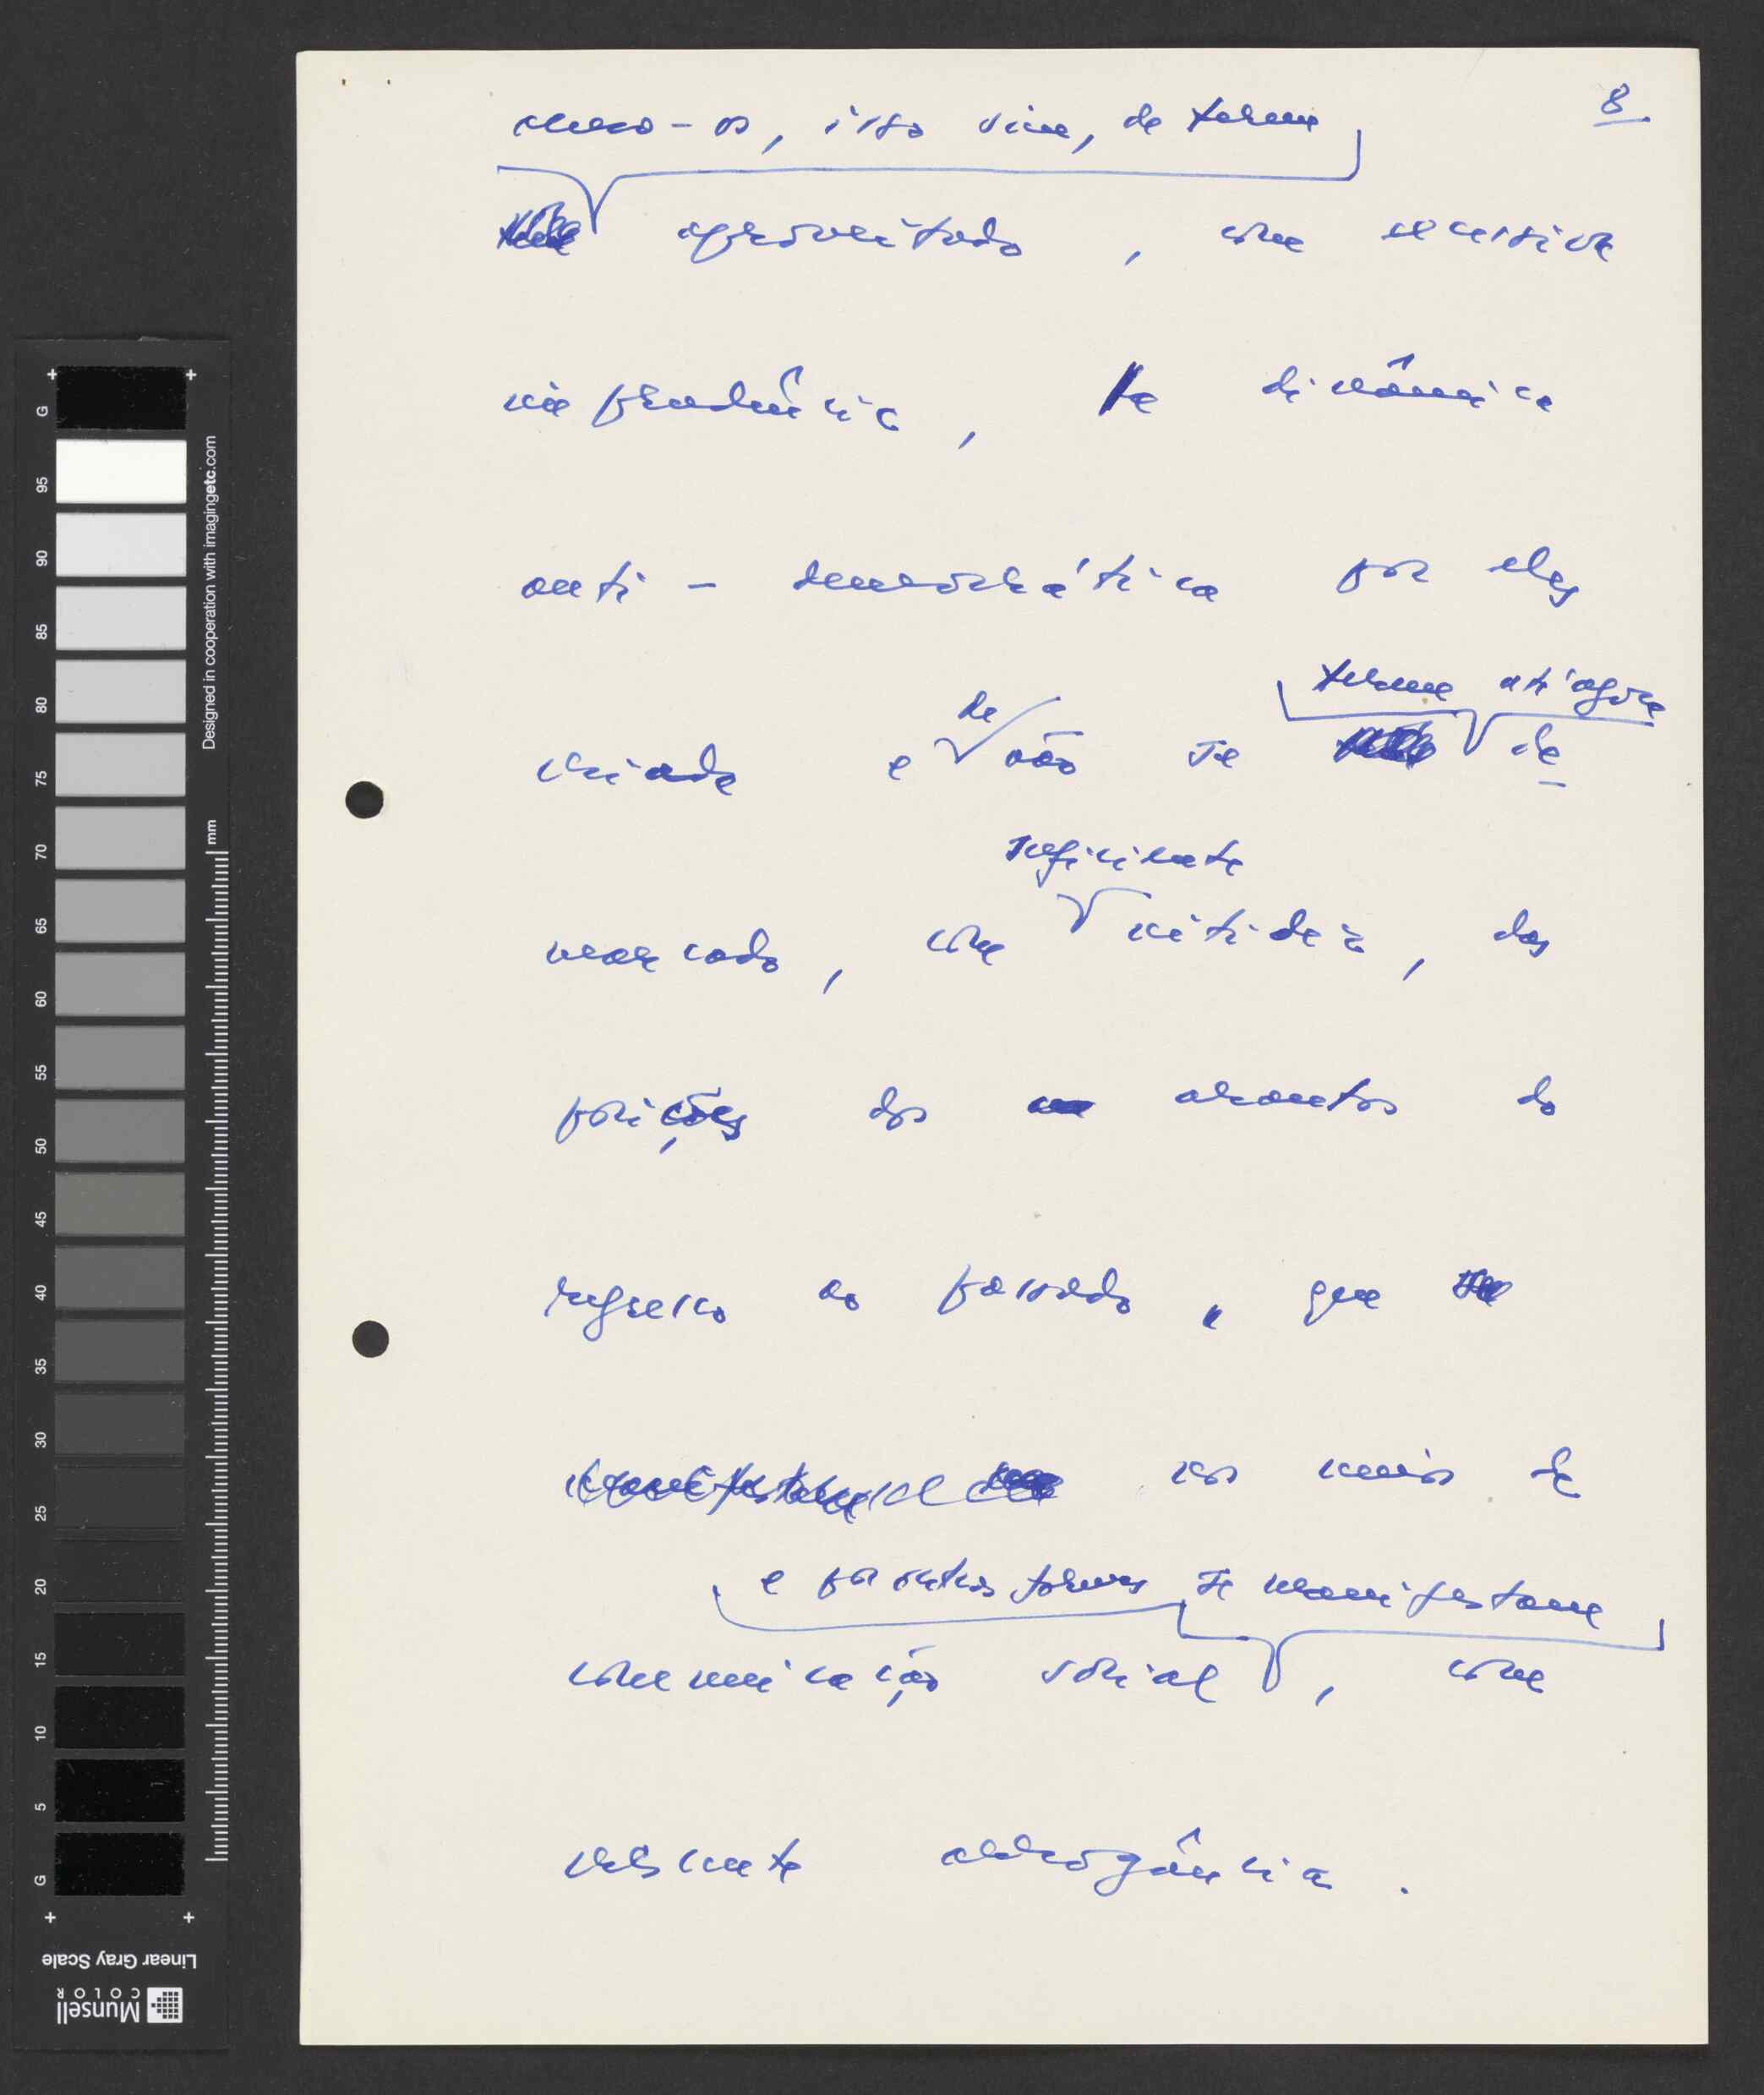 8
acuso-os, isso sim, de terem
aproveitado, com excessiva
imprudência, a dinâmica
anti-democrática por eles
criada e de não se terem até agora de-
marcado, com suficiente nitidez, das
posições dos arautos do
regresso ao passado, que
nos meios de
comunicação social e por outras formas se manifestam, com
crescente arrogância.
G
95
90
85
80
75
70
65
60
55
50
45
40
35
30
25
20
15
10
5
G
Designed in cooperation with imagingetc.com
mm
Linear Gray Scale
Munsell
COLOR